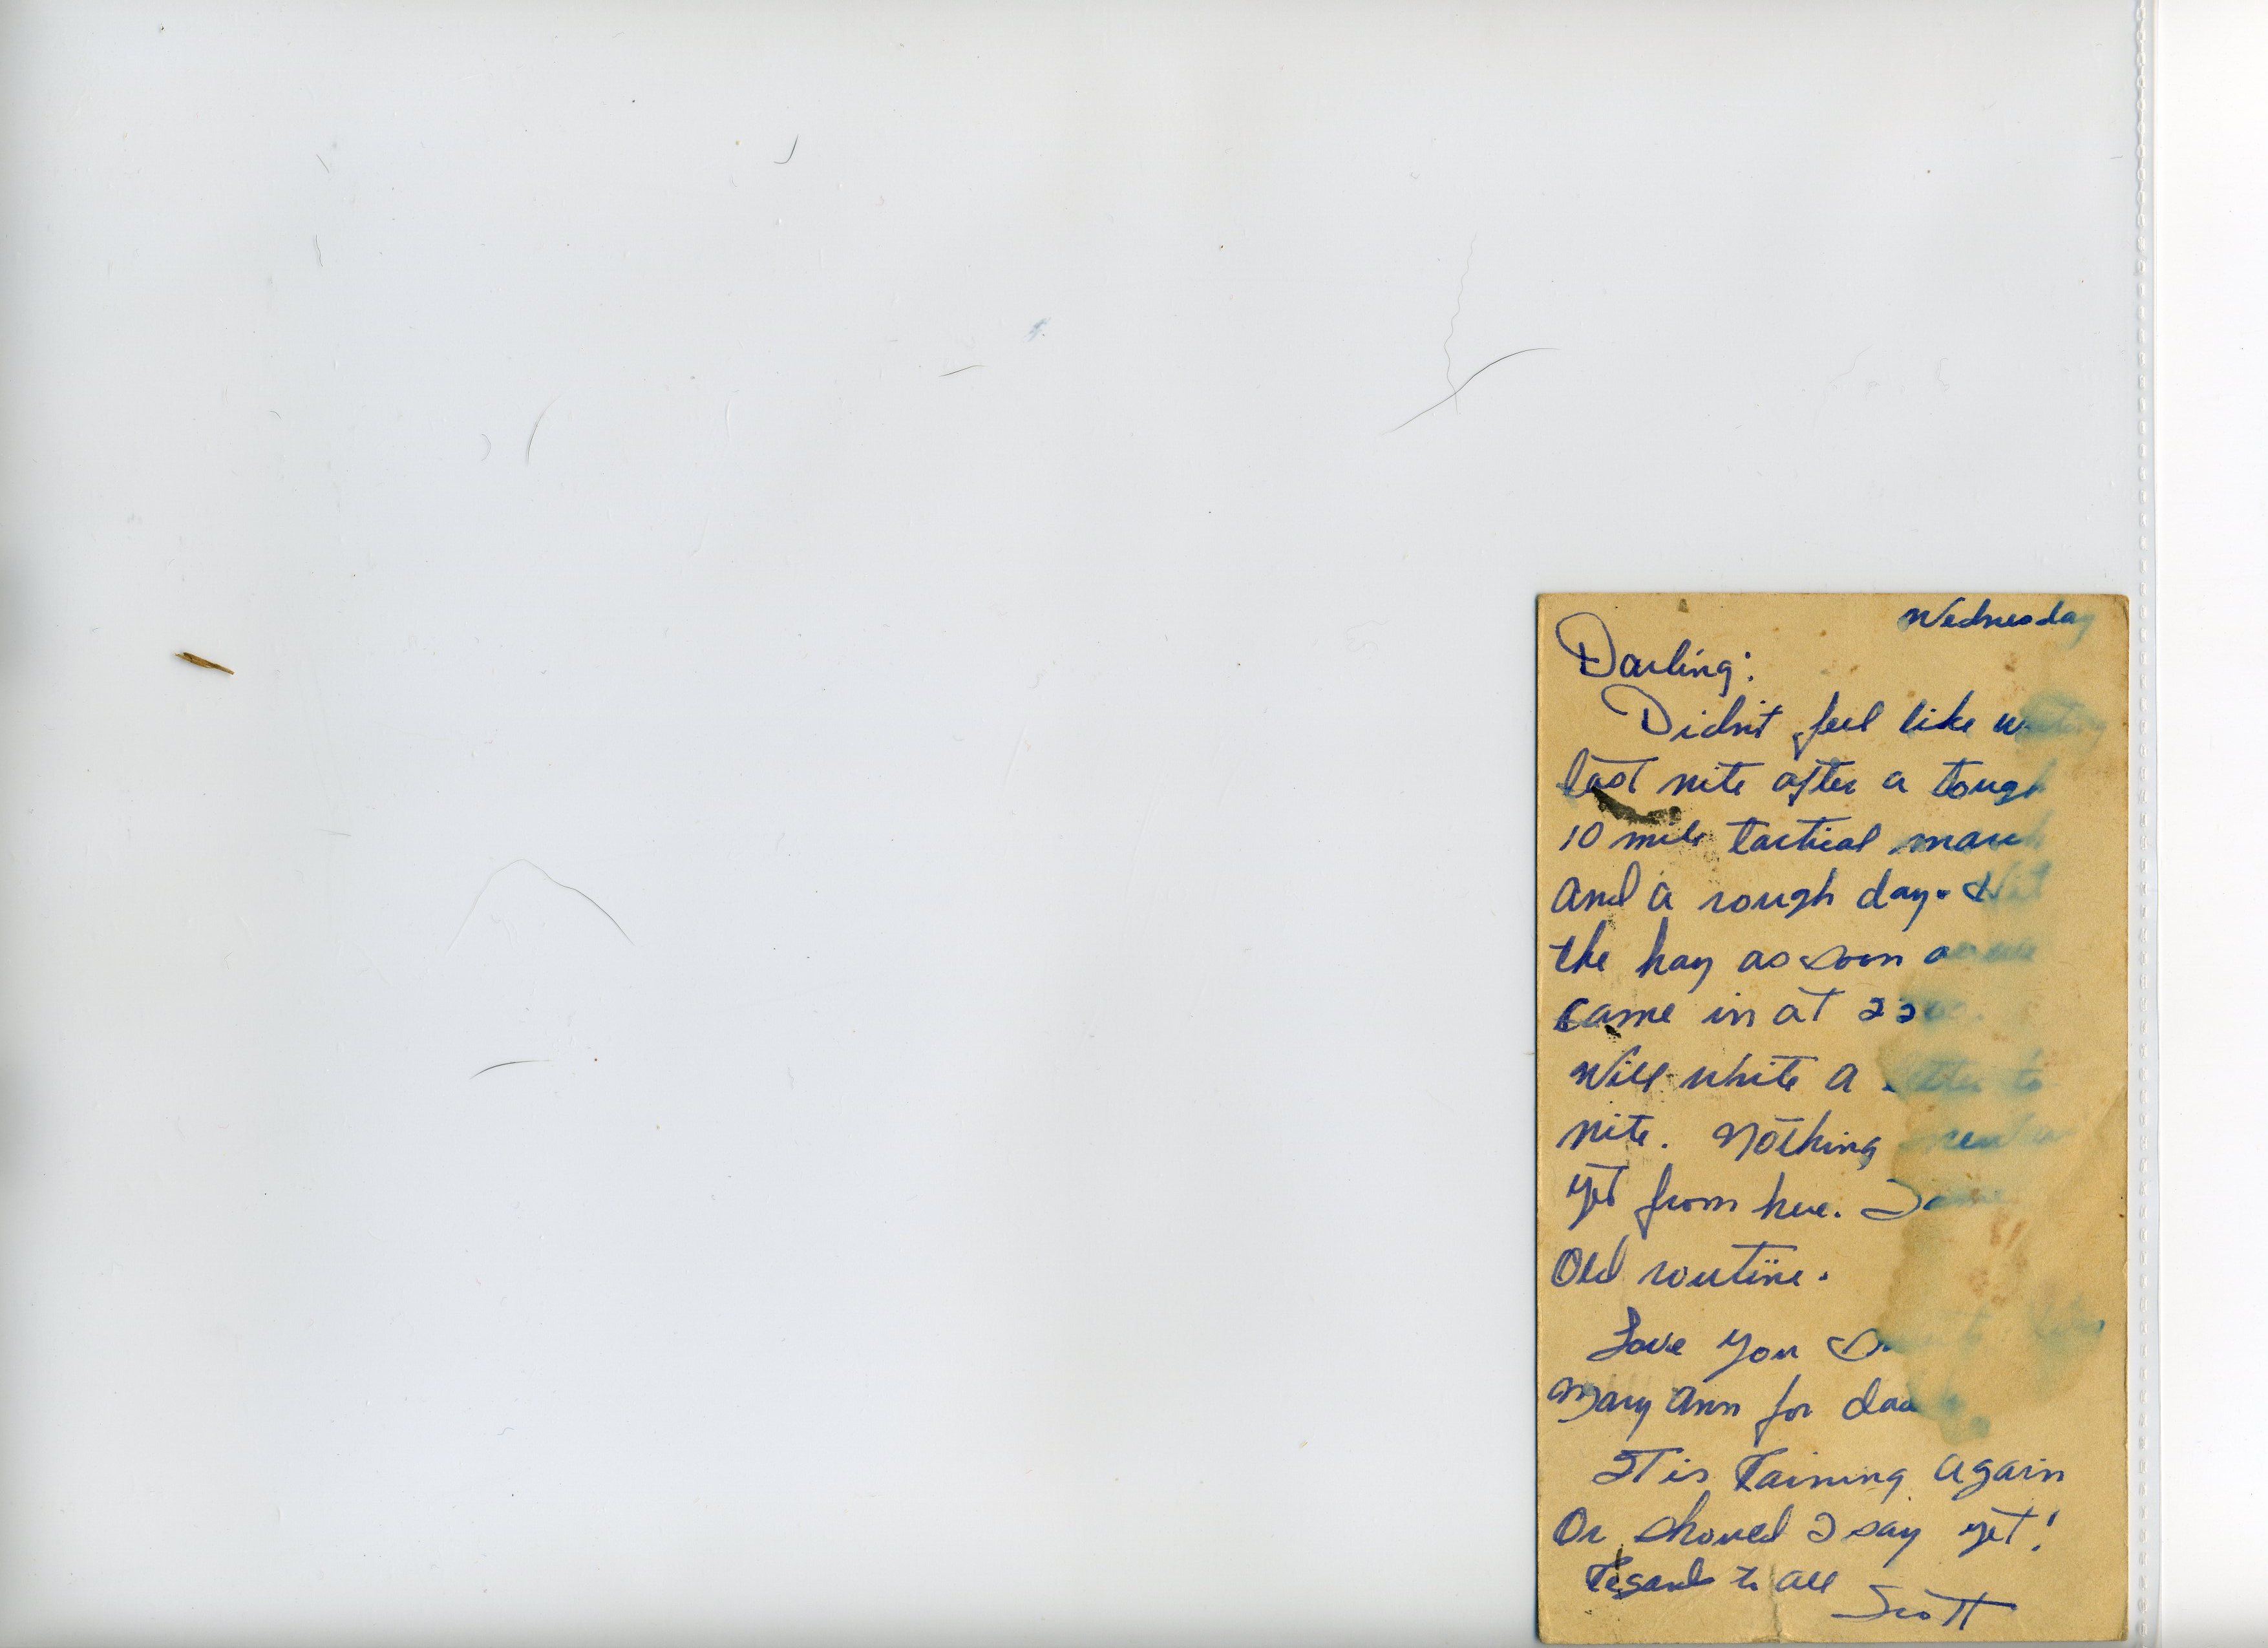 Wednesday
Darling:
Didn't feel like writing
last nite after a tough
10 mile tactical march
and a rough day. Hit
the hay as soon as we
came in at 2200.
Will write a letter to
nite. Nothing
yet from here. Same
Old routine.
Love you
Mary Ann for daddy
It is raining again
Or should I say yet!
Regards to all
Scott